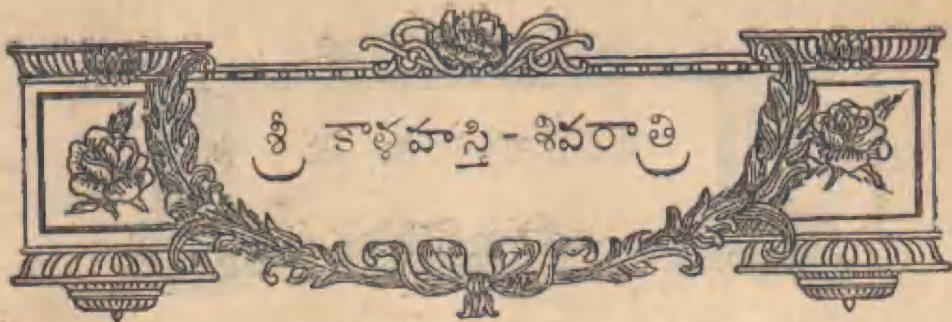 శ్రీ కాళహస్తి - శివరాత్రి